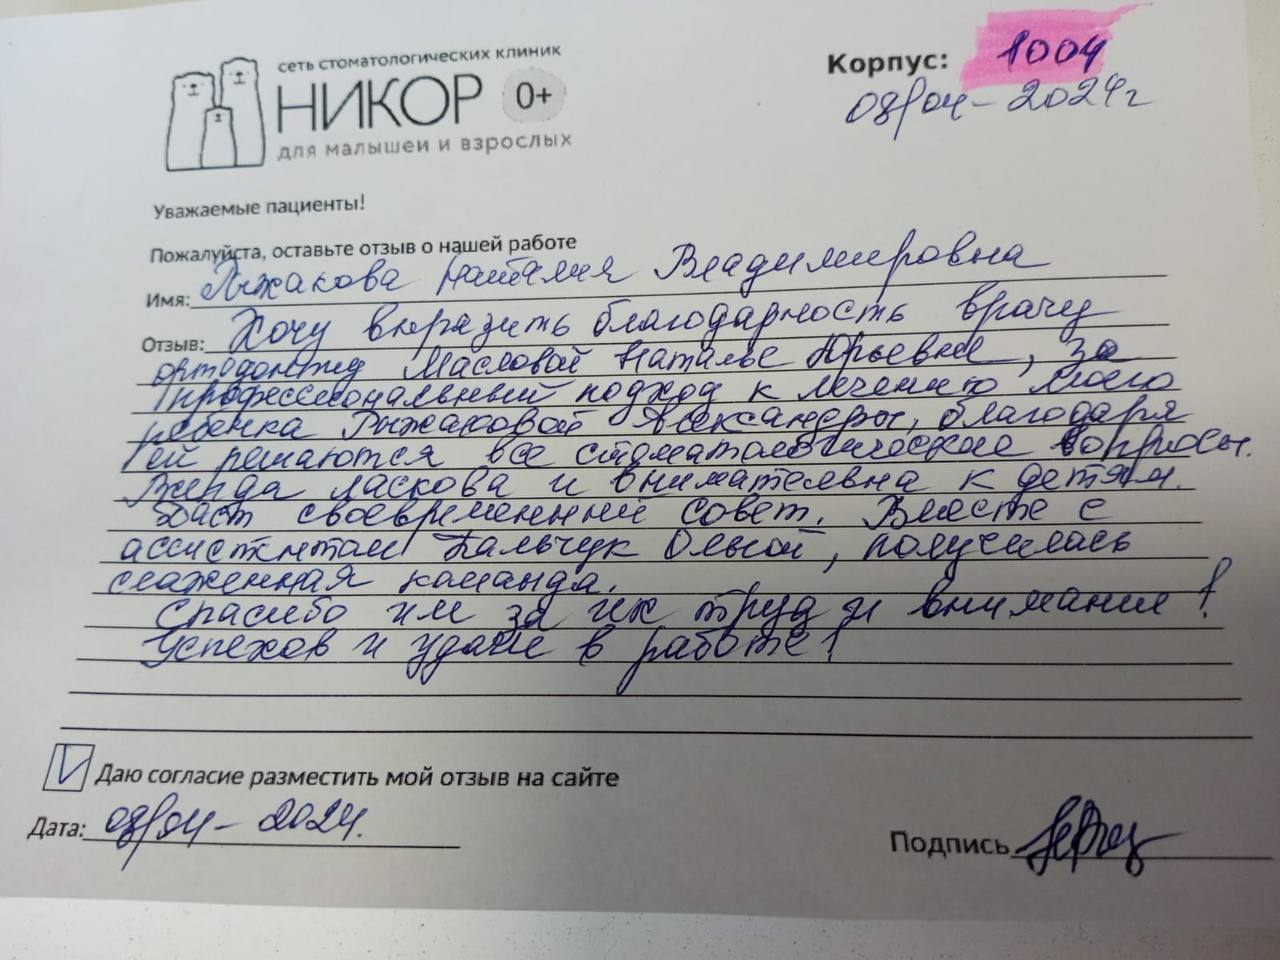 сеть стоматологических клиник
НИКОР 0+
для малышей и взрослых
Корпус: 1004
08/04-2024г
Уважаемые пациенты!
Пожалуйста, оставьте отзыв о нашей работе
Имя: Рыжакова Наталия Владимировна
Отзыв: Хочу выразить благодарность врачу
ортодонту Масловой Наталье Юрьевне, за
профессиональный подход к лечению моего
ребёнка Рыжаковой Александры, благодаря
ей решаются все стоматологические вопросы.
Всегда ласкова и внимательна к детям.
своевременный совет. Вместе с
ассистентом Пальчук Ольгой, получилась
слаженная команда.
Спасибо им за их труд и внимание!
Успехов и удачи в работе!
Даю согласие разместить мой отзыв на сайте
Дата: 08/04-2024.
Подпись